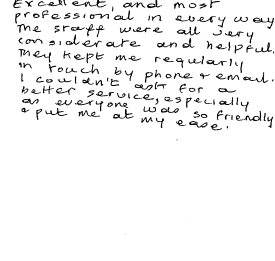 Excellent, and most
professional in every way
The staff were all very
considerate and helpful.
They kept me regularly
in touch by phone + email.
I couldn't ask for a
better service, especially
as everyone was so friendly
& put me at my ease.